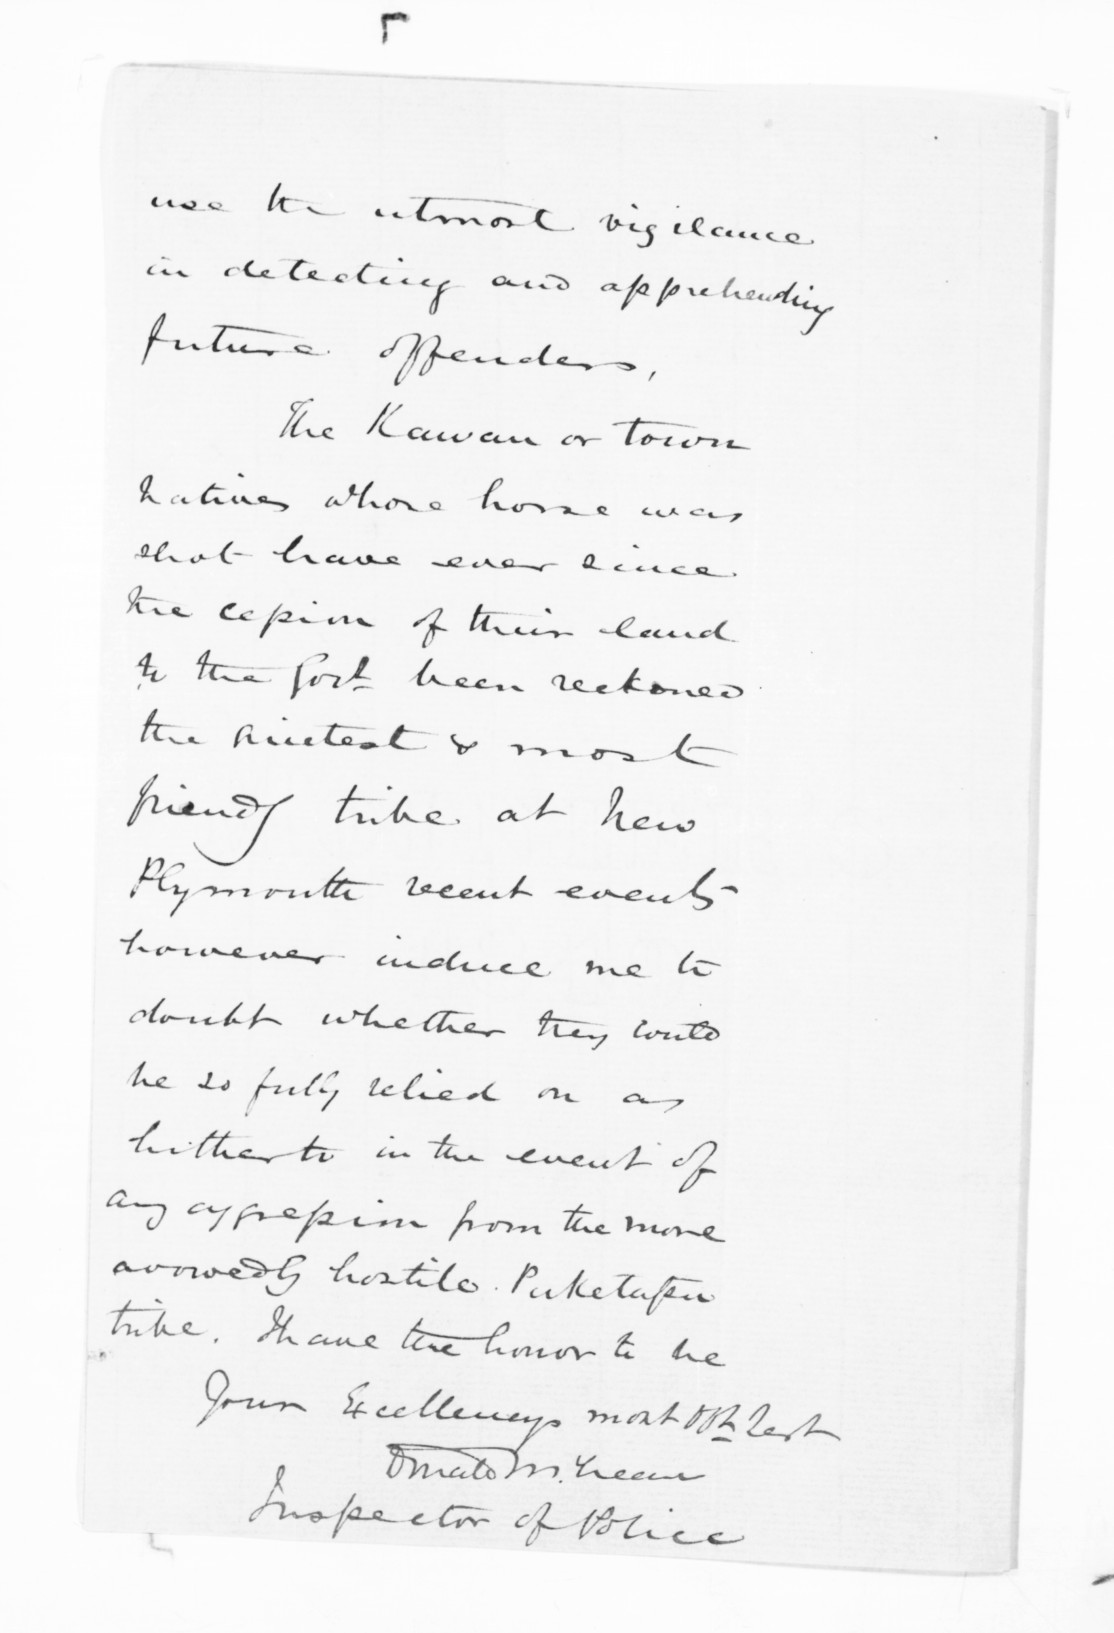 use the utmost vigilance
in detecting and apprehending
future offenders,
The Kawau or town
natives whose horse was
shot have ever since
the cession of their land
to the Govt been reckoned
the quietest & most
friendly tribe at New
Plymouth recent events
however induce me to
doubt whether they could
be so fully relied on as
hitherto in the event of
any aggression from the more
avowedly hostile Puketapu
tribe. I have the honor to be
Your Excellencys most Obt Sert
Donald McLean
Inspector of Police